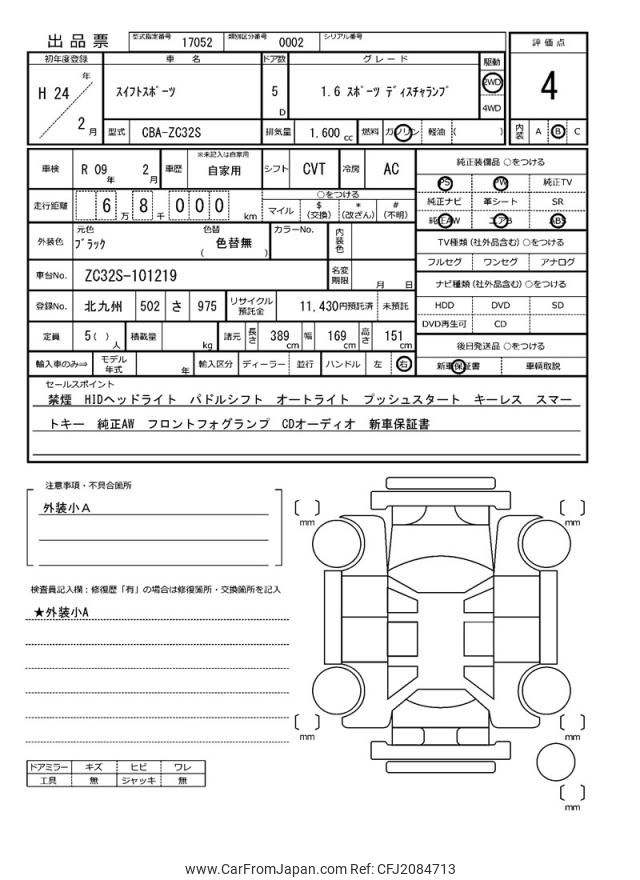 出品票 型式指定番号 17052 類別区分番号 0002 シリアル番号
評価点
4
内装 A B C
初年度登録 車名 ドア数 グレード 駆動
H 24 年 2 月 スイフトスポーツ 5 D 1.6 スポーツ ディスチャランプ 2WD 4WD
型式 CBA-ZC32S 排気量 1,600 cc 燃料 ガソリン 軽油 ( )
車検 R 09 年 2 月 車歴 ※未記入は自家用 自家用 シフト CVT 冷房 AC
走行距離 6 万 8 千 0 0 0 km ○をつける
マイル $ (交換) * (改ざん) # (不明)
外装色 元色 ブラック 色替 ( 色替無 ) カラーNo. 内装色
車台No. ZC32S-101219 名変期限 月 日
登録No. 北九州 502 さ 975 リサイクル預託金 11,430円預託済 未預託
定員 5( ) 人 積載量 kg 諸元 長さ 389 cm 幅 169 cm 高さ 151 cm
輸入車のみ⇒ モデル年式 年 輸入区分 ディーラー 並行 ハンドル 左 右
純正装備品 ○をつける
PS PW 純正TV
純正ナビ 革シート SR
純正AW エアB ABS
TV種類 (社外品含む) ○をつける
フルセグ ワンセグ アナログ
ナビ種類 (社外品含む) ○をつける
HDD DVD SD
DVD再生可 CD
後日発送品 ○をつける
新車保証書 車輌取説
セールスポイント
禁煙 HIDヘッドライト パドルシフト オートライト プッシュスタート キーレス スマー
トキー 純正AW フロントフォグランプ CDオーディオ 新車保証書
注意事項・不具合箇所
外装小A
検査員記入欄：修復歴「有」の場合は修復箇所・交換箇所を記入
★外装小A
ドアミラー キズ ヒビ ワレ
工具 無 ジャッキ 無
[ ] mm
[ ] mm
[ ] mm
[ ] mm
[ ] mm
www.CarFromJapan.com Ref: CFJ2084713